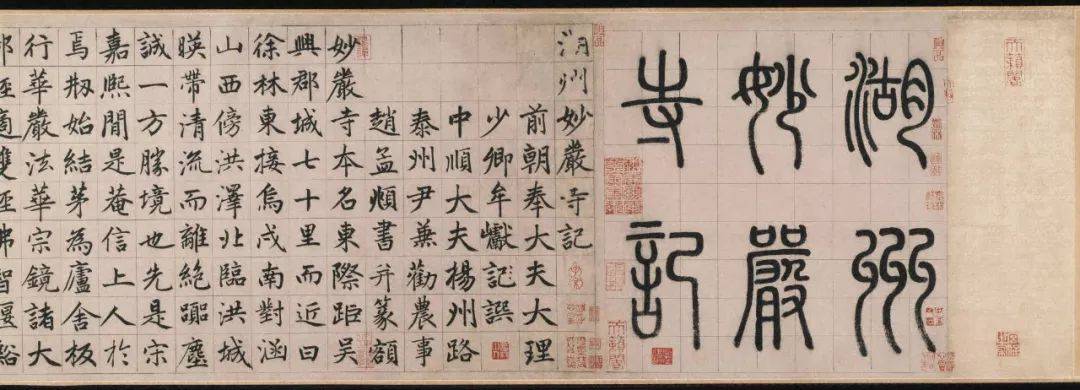 湖州
妙嚴
寺記
湖州妙嚴寺記
前朝奉大夫大理
少卿牟巘記譔
中順大夫楊州路
泰州尹兼勸農事
趙孟頫書并篆額
妙嚴寺本名東際距吳
興郡城七十里而近曰
徐林東接烏戍南對涵
山西傍洪澤北臨洪城
暎帶清流而離絕躝塵
誠一方勝境也先是宋
嘉熙間是菴信上人於
焉刱始結茅為廬舍板
行華嚴法華宗鏡諸大
部經適雙徑佛智偃谿